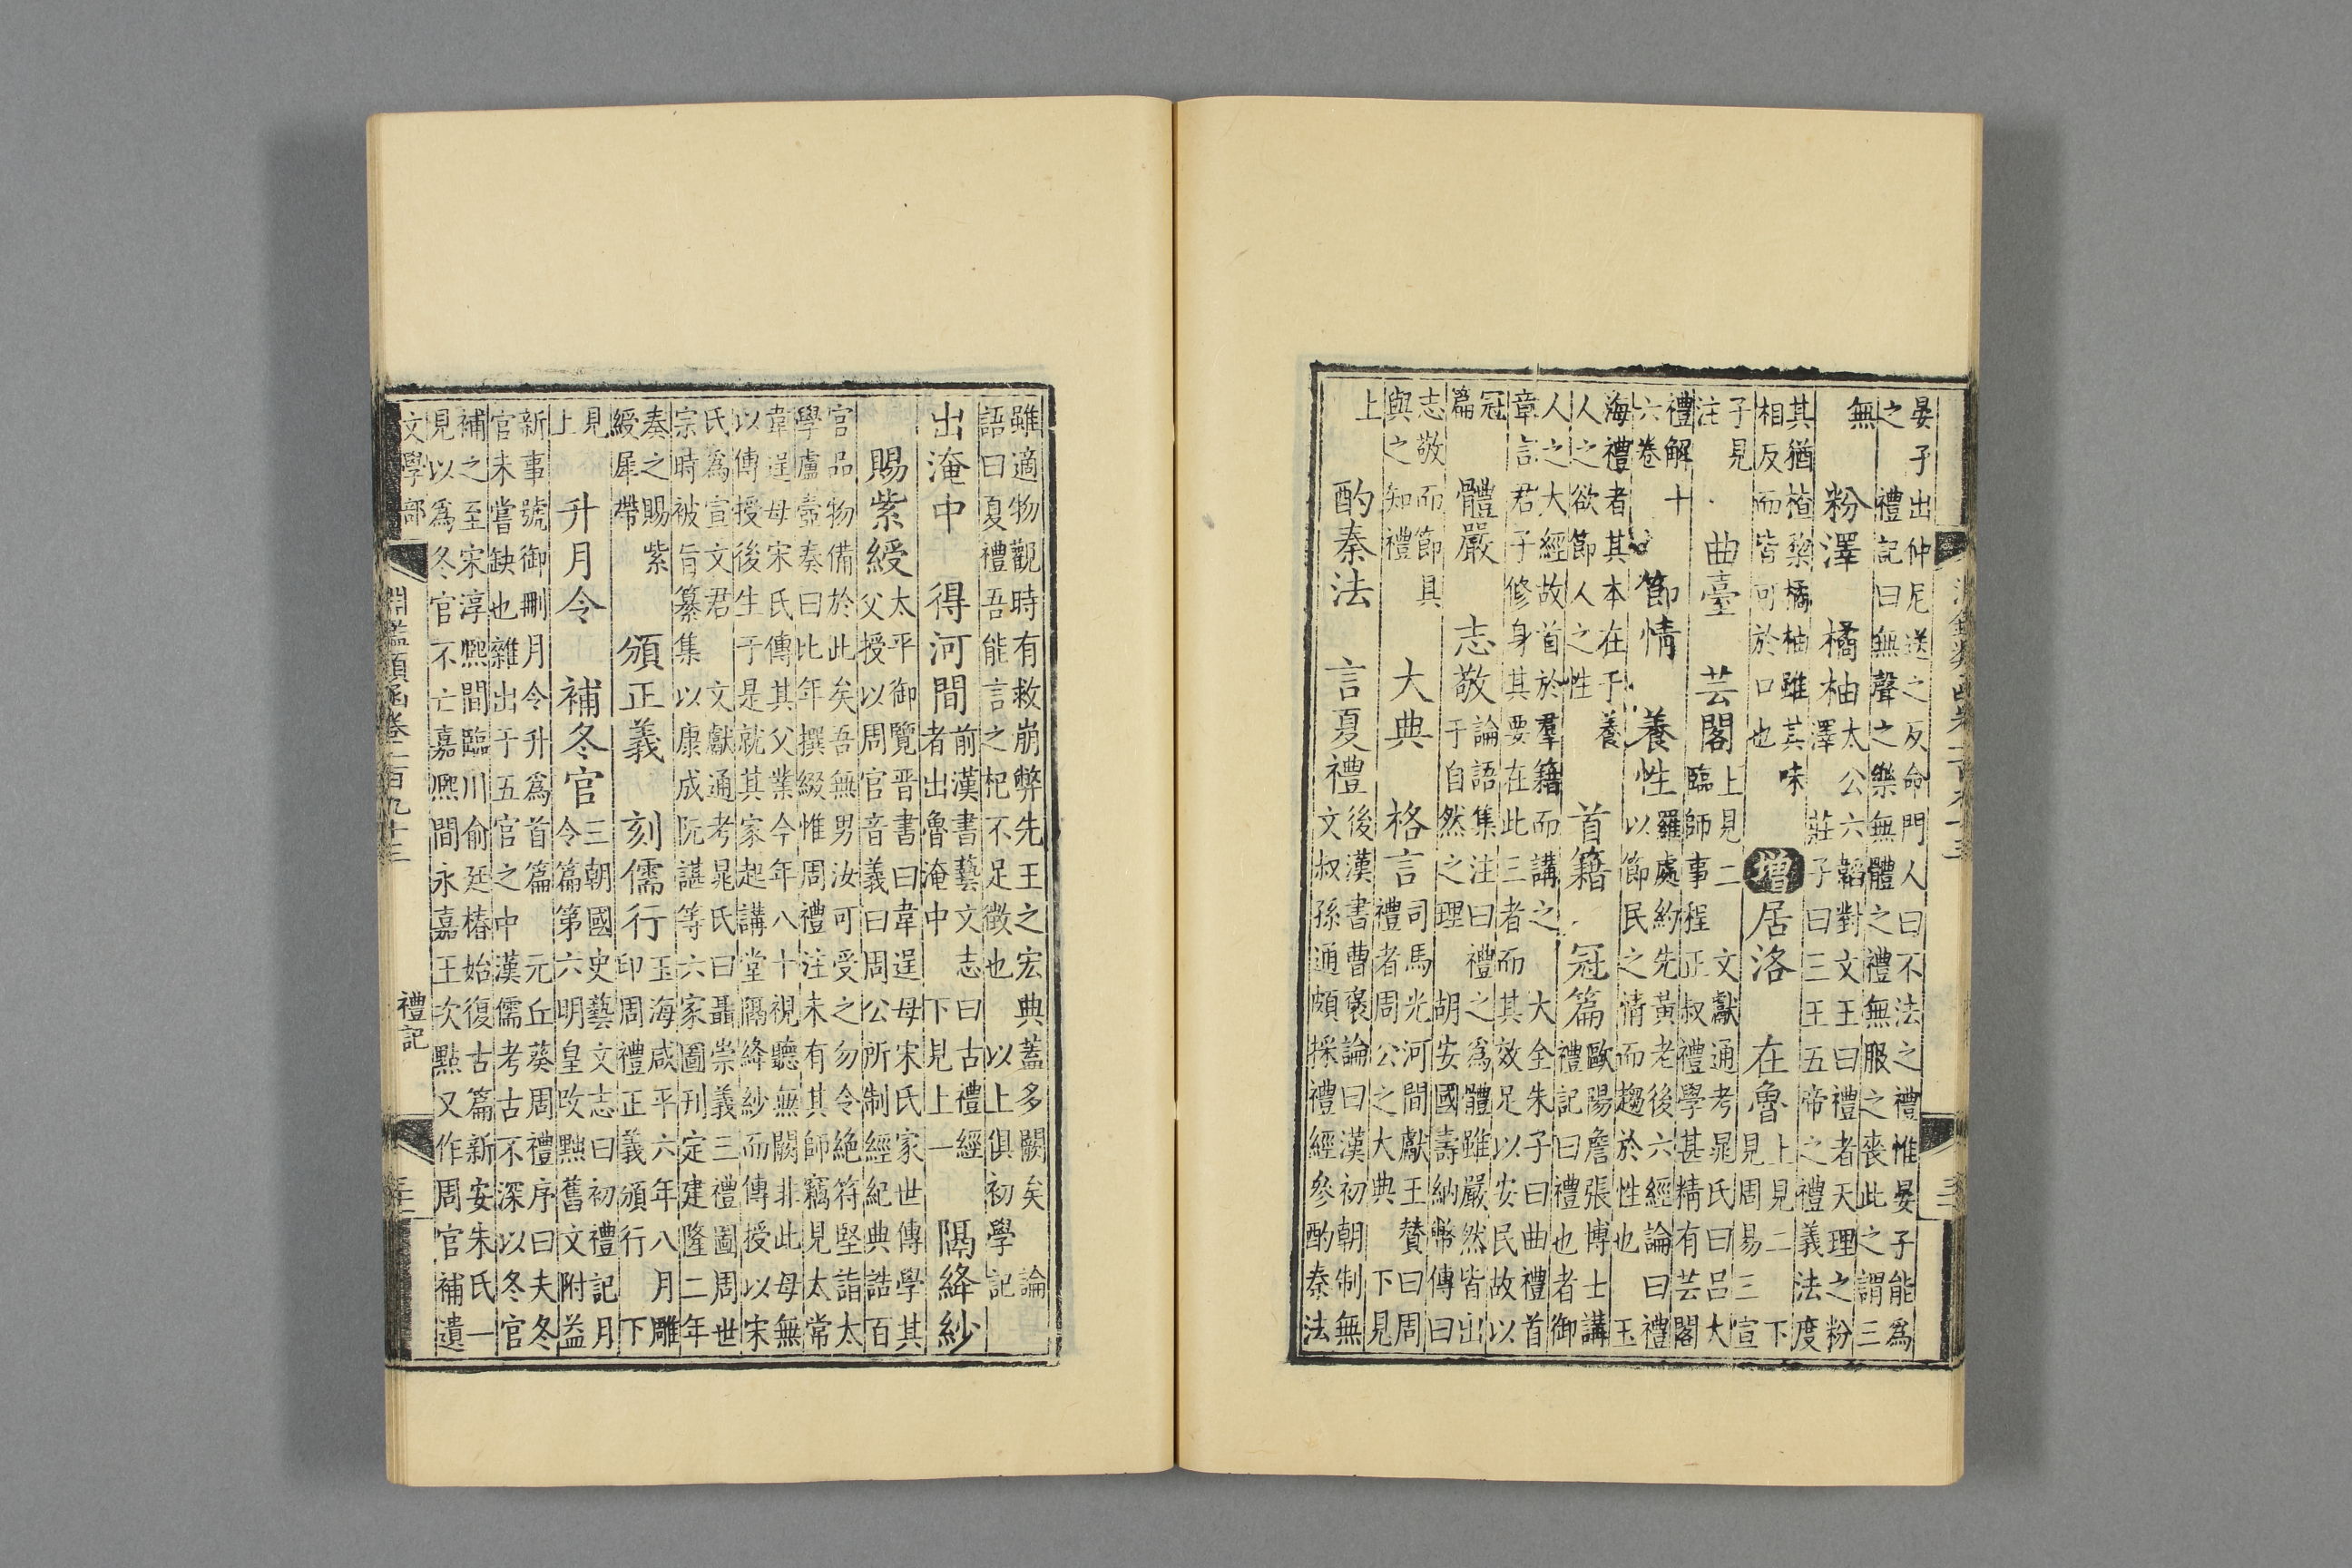 淵鑑類函卷一百九十三 三
晏子出仲尼送之反命門人曰不法之禮惟晏子能爲
之 禮記曰無聲之樂無體之禮無服之喪此之謂三
無 粉澤 橘柚 太公六韜對文王曰禮者天理之粉
澤 莊子曰三王五帝之禮義法度
其猶楂梨橘柚雖其味
相反而皆可於口也 增 居洛 在魯 上見二下
見周易三宣
子見
注 曲臺 芸閣 上見二 文獻通考晁氏曰呂大
臨師事程正叔禮學甚精有芸閣
禮解十
六卷 節情 養性 羅處約先黃老後六經論曰禮
以節民之情而趨於性也 玉
海禮者其本在于養
人之欲節人之性 首籍 冠篇 歐陽詹張博士講
禮記曰禮也者御
人之大經故首於羣籍而講之 大全朱子曰曲禮首
章言君子修身其要在此三者而其效足以安民故以
冠
篇 體嚴 志敬 論語集注曰禮之爲體雖嚴然皆出
于自然之理 胡安國壽納幣傳曰
志敬而節具
與之知禮 大典 格言 司馬光河間獻王贊曰周
禮者周公之大典 下見
上 酌秦法 言夏禮 後漢書曹褒論曰漢初朝制無
文叔孫通頗採禮經參酌秦法
雖適物觀時有救崩弊先王之宏典蓋多闕矣 論
語曰夏禮吾能言之杞不足徵也 以上俱初學記
出淹中 得河間 前漢書藝文志曰古禮經
者出魯淹中 下見上一 隔絳紗
賜紫綬 太平御覽晋書曰韋逞母宋氏家世傳學其
父授以周官音義曰周公所制經紀典誥百
官品物備於此矣吾無男汝可受之勿令絕符堅詣太
學盧壺奏曰比年撰綴惟周禮注未有其師竊見太常
韋逞母宋氏傳其父業今年八十視聽無闕非此母無
以傳授後生于是就其家起講堂隔絳紗而傳授以宋
氏爲宣文君 文獻通考晁氏曰聶崇義三禮圖周世
宗時被旨纂集以康成阮諶等六家圖刊定建隆二年
奏之賜紫
綬犀帶 頒正義 刻儒行 玉海咸平六年八月雕
印周禮正義頒行 下
見
上 升月令 補冬官 三朝國史藝文志曰初禮記月
令篇第六明皇改黜舊文附益
新事號御刪月令升爲首篇 元丘葵周禮序曰夫冬
官未嘗缺也雜出于五官之中漢儒考古不深以冬官
補之至宋淳熙間臨川俞廷椿始復古篇新安朱氏一
見以爲冬官不亡嘉熙間永嘉王次點又作周官補遺
文學部 淵鑑類函卷一百九十三 禮記 三